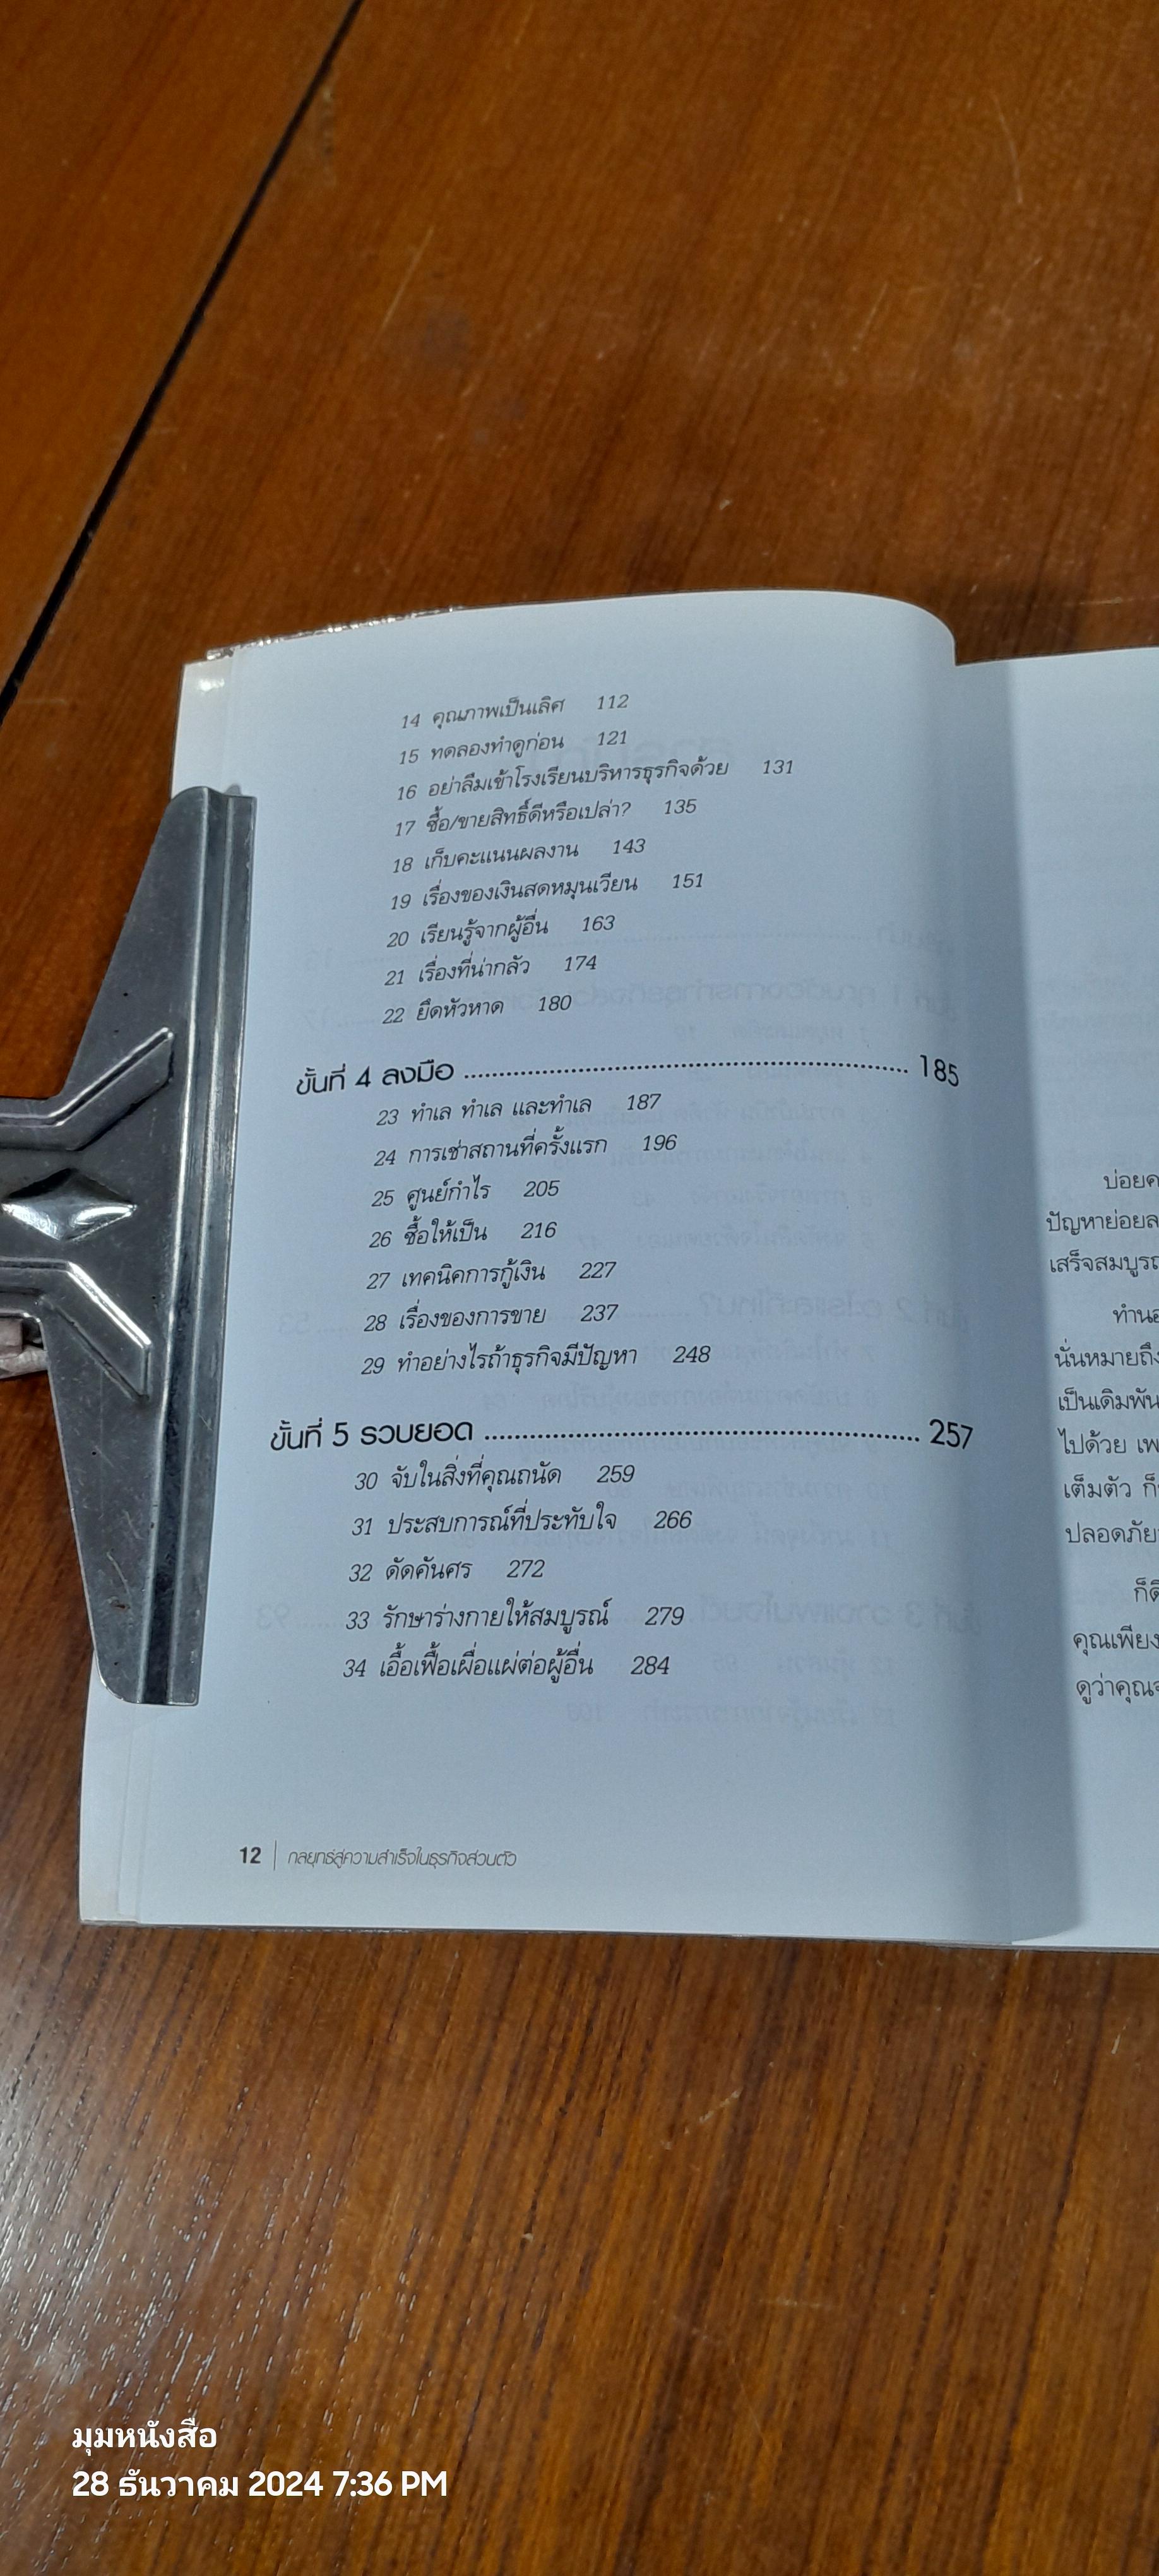 14 คุณภาพเป็นเลิศ 112
15 ทดลองทำดูก่อน 121
16 อย่าลืมเข้าโรงเรียนบริหารธุรกิจด้วย 131
17 ซื้อ/ขายสิทธิ์ดีหรือเปล่า? 135
18 เก็บคะแนนผลงาน 143
19 เรื่องของเงินสดหมุนเวียน 151
20 เรียนรู้จากผู้อื่น 163
21 เรื่องที่น่ากลัว 174
22 ยึดหัวหาด 180
ขั้นที่ 4 ลงมือ 185
23 ทำเล ทำเล และทำเล 187
24 การเช่าสถานที่ครั้งแรก 196
25 ศูนย์กำไร 205
26 ซื้อให้เป็น 216
27 เทคนิคการกู้เงิน 227
28 เรื่องของการขาย 237
29 ทำอย่างไรถ้าธุรกิจมีปัญหา 248
ขั้นที่ 5 รวบยอด 257
30 จับในสิ่งที่คุณถนัด 259
31 ประสบการณ์ที่ประทับใจ 266
32 ดัดคันศร 272
33 รักษาร่างกายให้สมบูรณ์ 279
34 เอื้อเฟื้อเผื่อแผ่ต่อผู้อื่น 284
12 กลยุทธ์สู่ความสำเร็จในธุรกิจส่วนตัว
ปัญหาย่อย
นั่นหมายถึง
ไปด้วย
เต็มตัว
ปลอดภัย
คุณเพียง
มุมหนังสือ
28 ธันวาคม 2024 7:36 PM